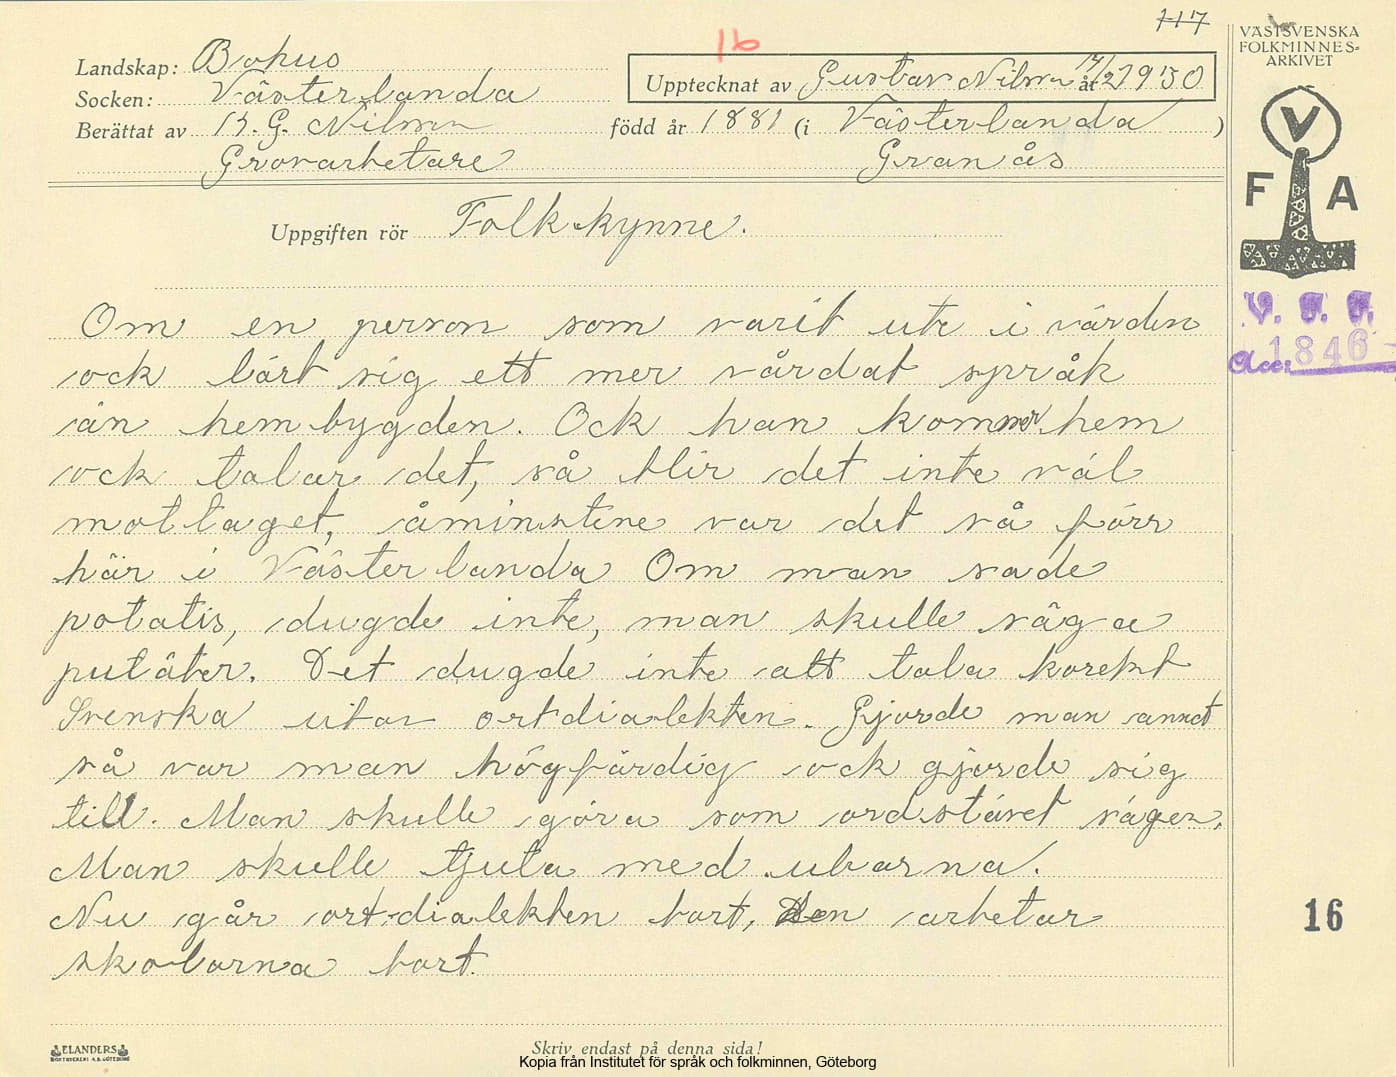 117
16
VÄSTSVENSKA
FOLKMINNES=
ARKIVET
Landskap: Bohus
Socken: Västerlanda
Upptecknat av Gustav Nilson 17/2 år 1930
Berättat av K. G. Nilson född år 1881 (i Västerlanda )
Grovarbetare Granås
V
F A
Uppgiften rör Folkkynne.
V. F. F.
Acc: 1846
Om en person som varit ute i värden
ock lärt sig ett mer vårdat språk
än hembygden. Ock han kommer hem
ock talar det, så blir det inte väl
mottaget, åminstene var det så förr
här i Västerlanda Om man sade
potatis, dugde inte, man skulle säga
putäter. Det dugde inte att tala korekt
Svenska utan ortdialekten. Gjorde man annat
så var man högfärdig ock gjorde sig
till. Man skulle göra som ordstävet säger,
Man skulle tjuta med ubarna.
Nu går ort-dialekten bort, Den arbetar
skolorna bort.
16
ELANDERS
BOKTRYCKERI A.B. GÖTEBORG
Skriv endast på denna sida!
Kopia från Institutet för språk och folkminnen, Göteborg